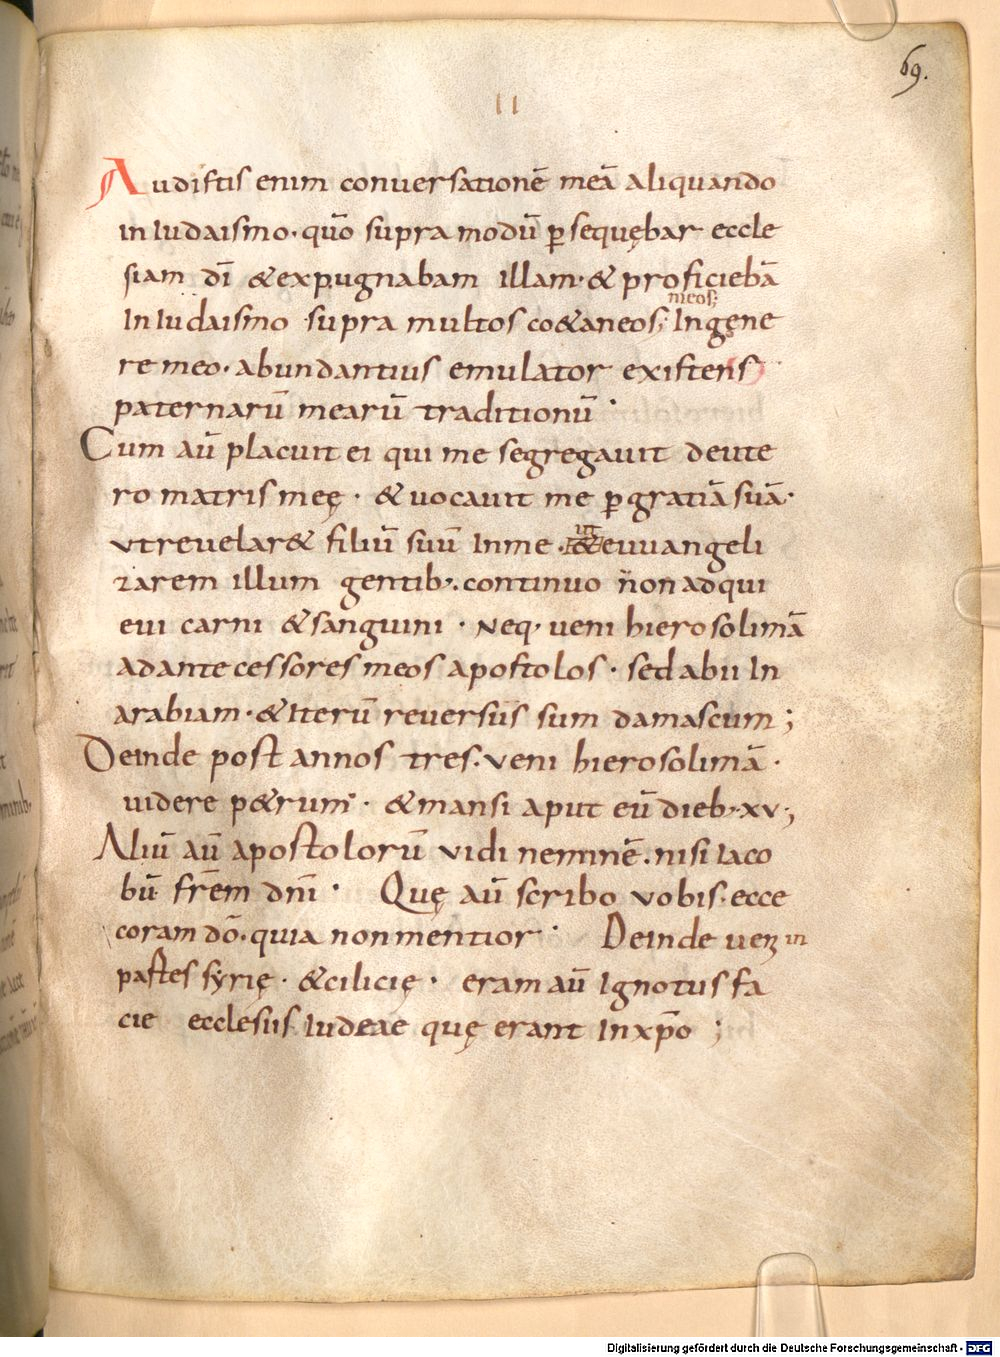 69.
II
Audistis enim conuersationē meā aliquando
in Iudaismo· quō supra modū ꝑsequębar eccle
siam dī &expugnabam illam· & proficiebā
meos;
In Iudaismo supra multos co&aneos; In gene
re meo· abundantius emulator existens
paternarū mearū traditionū ·
Cum aū placuit ei qui me segregauit deute
ro matris meę · & uocauit me ꝑ gratiā suā·
ut
Vt reuelar& filiū suū In me · & euuangeli
zarem illum gentib;· continuo non adqui
eui carni & sanguini · Neq; ueni hierosolimā
ad ante cessores meos apostolos · sed abii In
arabiam · & Iterū reuersus sum damascum ;
Deinde post annos tres· Veni hierosolimā ·
uidere p&rum · & mansi aput eū dieb; · xv·;
Aliū aū apostolorū vidi neminē· nisi Iaco
bū frēm dnī · Quę aū scribo vobis· ecce
coram dō· quia non mentior · Deinde ueni in
partes syrię · & cilicię · eram aū Ignotus fa
cie ecclesiis Iudeae quę erant In xp̄o ;
Digitalisierung gefördert durch die Deutsche Forschungsgemeinschaft - DFG